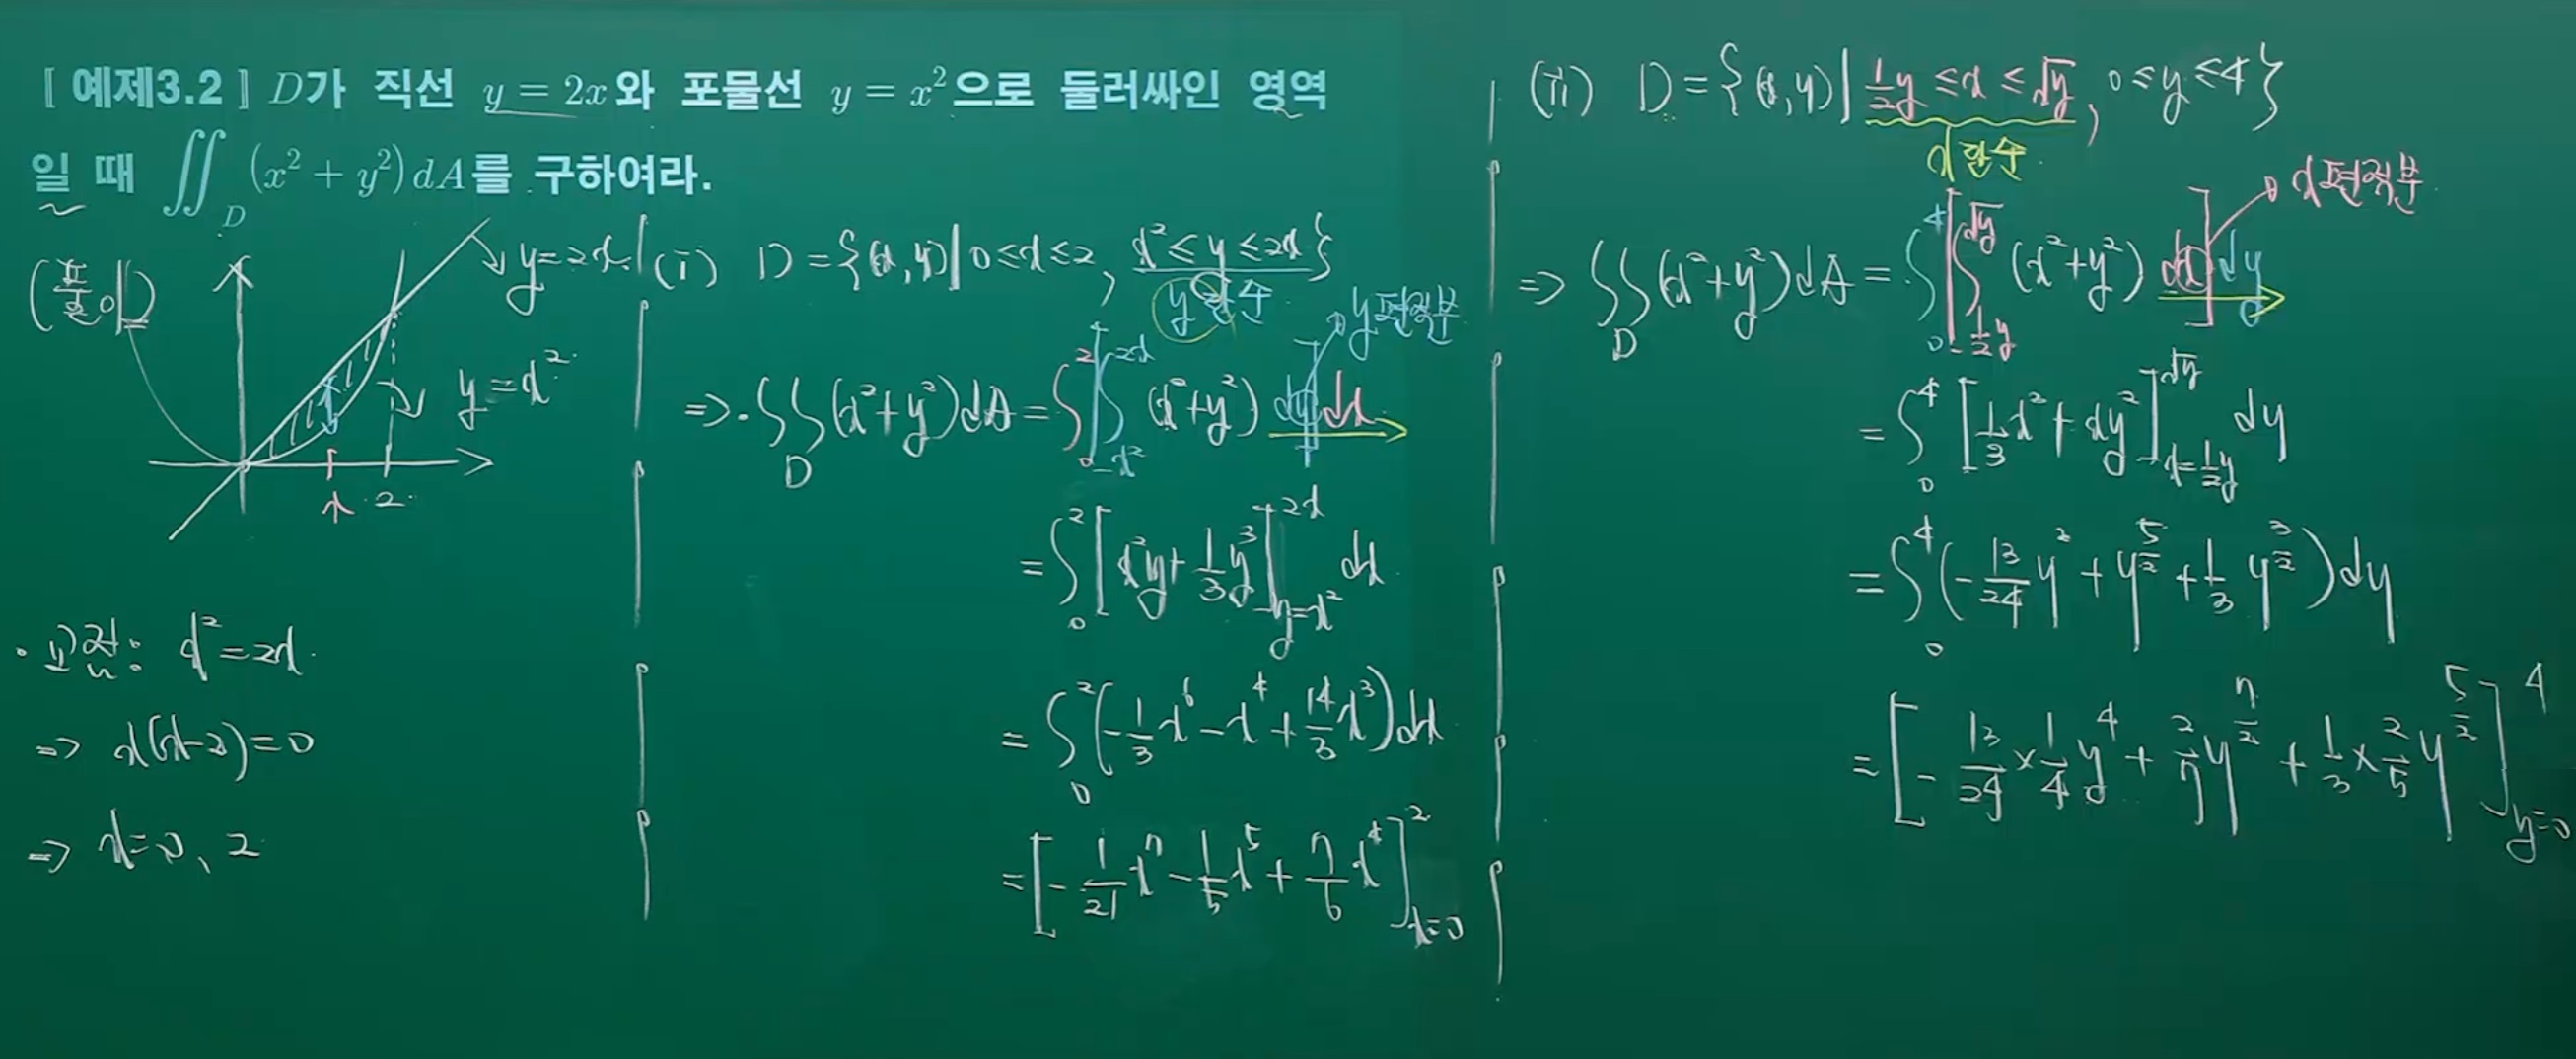 [예제3.2] D가 직선 y = 2x와 포물선 y = x²으로 둘러싸인 영역
일 때 ∬_D (x² + y²) dA를 구하여라.
(풀이)
y=2x
y=x²
x 2
· 교점: x²=2x
=> x(x-2)=0
=> x=0, 2
(i) D={(x,y)| 0≤x≤2, x²≤y≤2x}
y 함수
y편적분
=> ∬_D (x²+y²)dA = ∫_0^2 [∫_{x²}^{2x} (x²+y²) dy] dx
= ∫_0^2 [x²y+1/3 y³]_{y=x²}^{2x} dx
= ∫_0^2 (-1/3 x⁶ - x⁴ + 14/3 x³)dx
= [-1/21 x⁷ - 1/5 x⁵ + 7/6 x⁴]_{x=0}^2
(ii) D={(x,y)| 1/2 y ≤ x ≤ √y, 0≤y≤4}
x 함수
x편적분
=> ∬_D (x²+y²)dA = ∫_0^4 [∫_{1/2 y}^{√y} (x²+y²) dx] dy
= ∫_0^4 [1/3 x² + xy²]_{x=1/2 y}^{√y} dy
= ∫_0^4 (-13/24 y² + y^{5/2} + 1/3 y^{3/2})dy
= [-13/24 × 1/4 y⁴ + 2/7 y^{7/2} + 1/3 × 2/5 y^{5/2}]_{y=0}^4